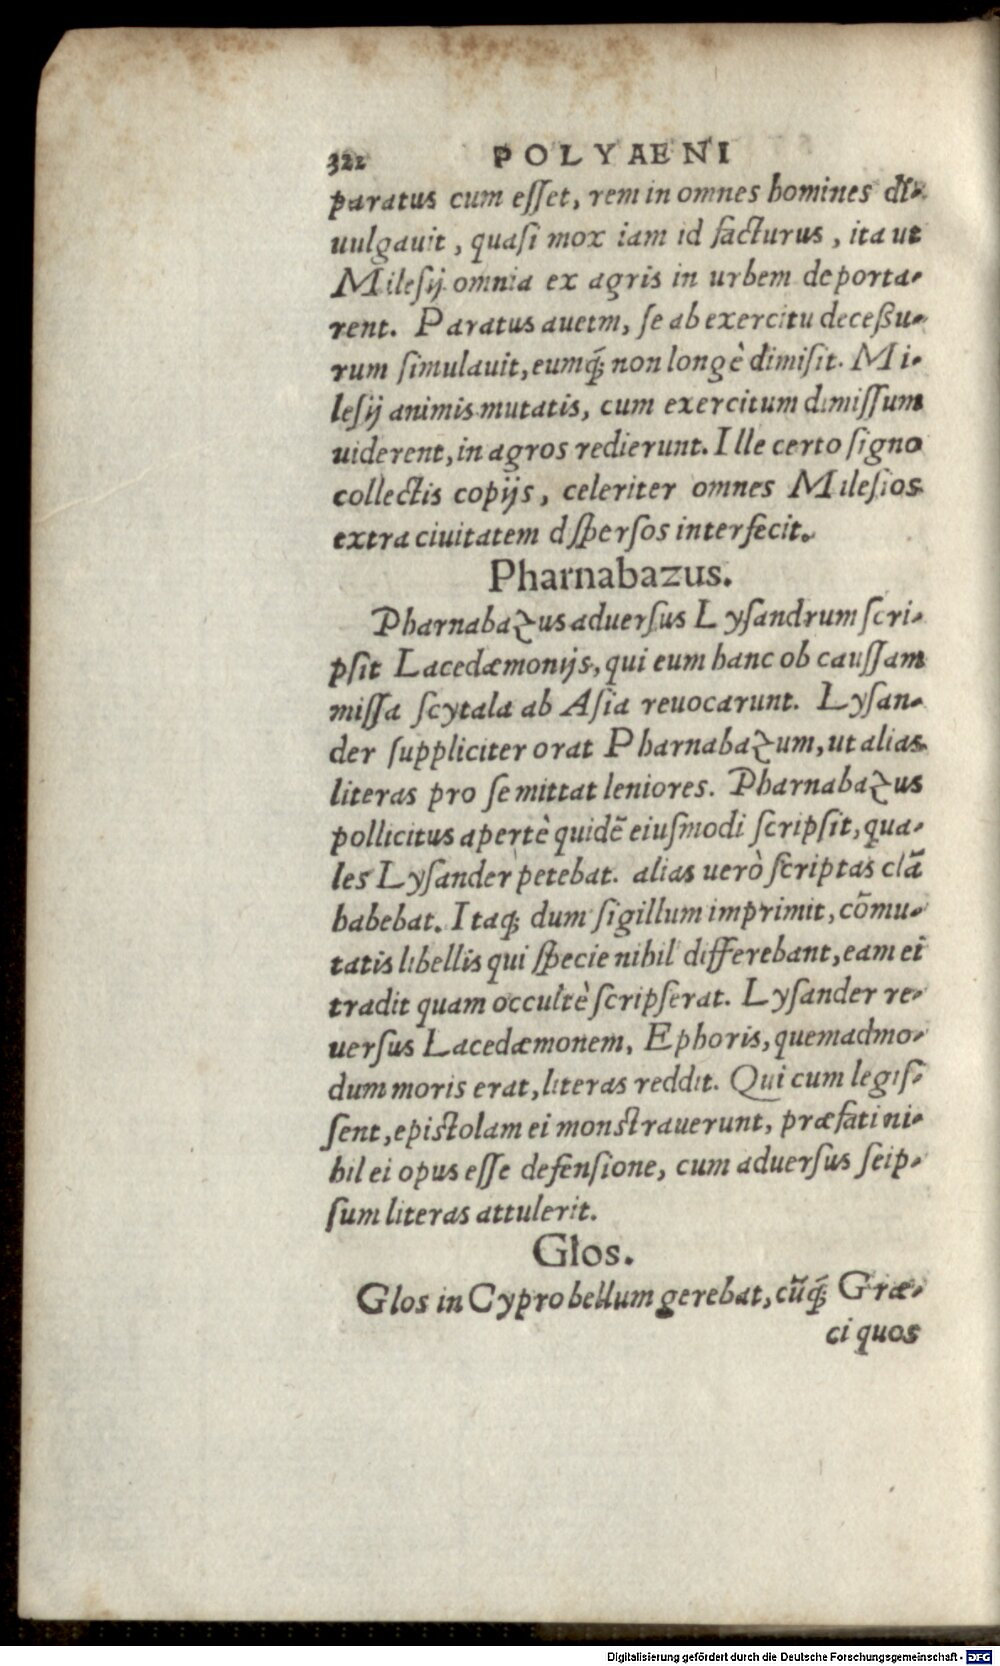 322 POLYAENI
paratus cum eſſet, rem in omnes homines di-
uulgauit, quaſi mox iam id facturus, ita ut
Mileſij omnia ex agris in urbem deporta-
rent. Paratus auetm, ſe ab exercitu deceßu-
rum ſimulauit, eumq́; non longè dimiſit. Mi-
leſij animis mutatis, cum exercitum dimiſſum
uiderent, in agros redierunt. Ille certo ſigno
collectis copijs, celeriter omnes Mileſios
extra ciuitatem dſperſos interfecit.
Pharnabazus.
Pharnabazus aduerſus Lyſandrum ſcri-
pſit Lacedæmonijs, qui eum hanc ob cauſſam
miſſa ſcytala ab Aſia reuocarunt. Lyſan-
der ſuppliciter orat Pharnabazum, ut alias
literas pro ſe mittat leniores. Pharnabazus
pollicitus apertè quidẽ eiuſmodi ſcripſit, qua-
les Lyſander petebat. alias uerò ſcriptas clã
habebat. Itaq; dum ſigillum imprimit, cõmu-
tatis libellis qui ſpecie nihil differebant, eam ei
tradit quam occultè ſcripſerat. Lyſander re-
uerſus Lacedæmonem, Ephoris, quemadmo-
dum moris erat, literas reddit. Qui cum legiſ-
ſent, epiſtolam ei monſtrauerunt, præfati ni-
hil ei opus eſſe defenſione, cum aduerſus ſeip-
ſum literas attulerit.
Glos.
Glos in Cypro bellum gerebat, cũq́; Græ-
ci quos
Digitalisierung gefördert durch die Deutsche Forschungsgemeinschaft - DFG